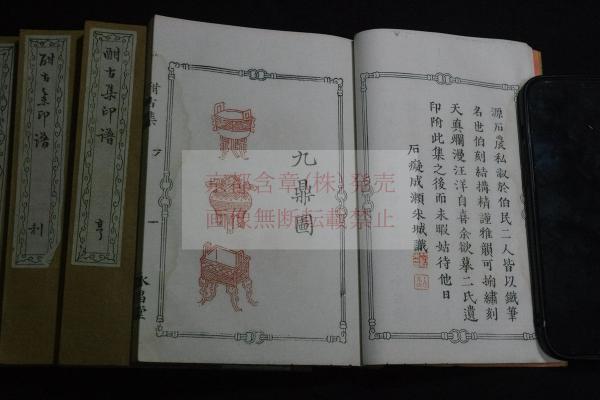 源石農私淑於伯民二人皆以鐵筆
名世伯刻結構精謹雅韻可掬繡刻
天真爛漫汪洋自喜余欲摹二氏遺
印附此集之後而未暇姑待他日
石癡成瀬朱城識
九鼎圖
酣古集
一
永昌堂
酣古集印譜
亨
酣古集印譜
利
京都含章(株)発売
画像無断転載禁止